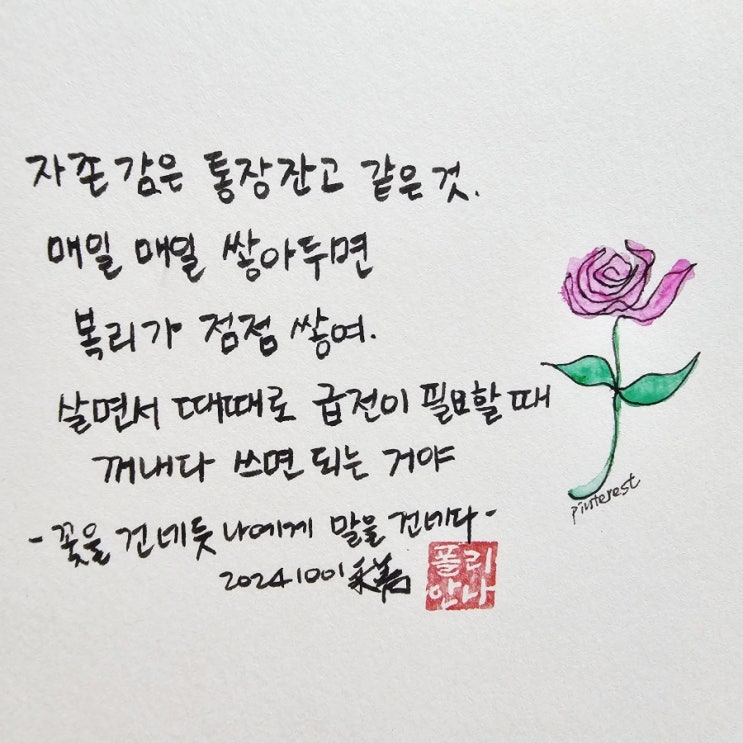 자존감은 통장잔고 같은것.
매일 매일 쌓아두면
복리가 점점 쌓여.
살면서 때때로 급전이 필요할때
꺼내다 쓰면 되는 거야
-꽃을 건네듯 나에게 말을 건네다-
20241001
폴리
안나
pinterest